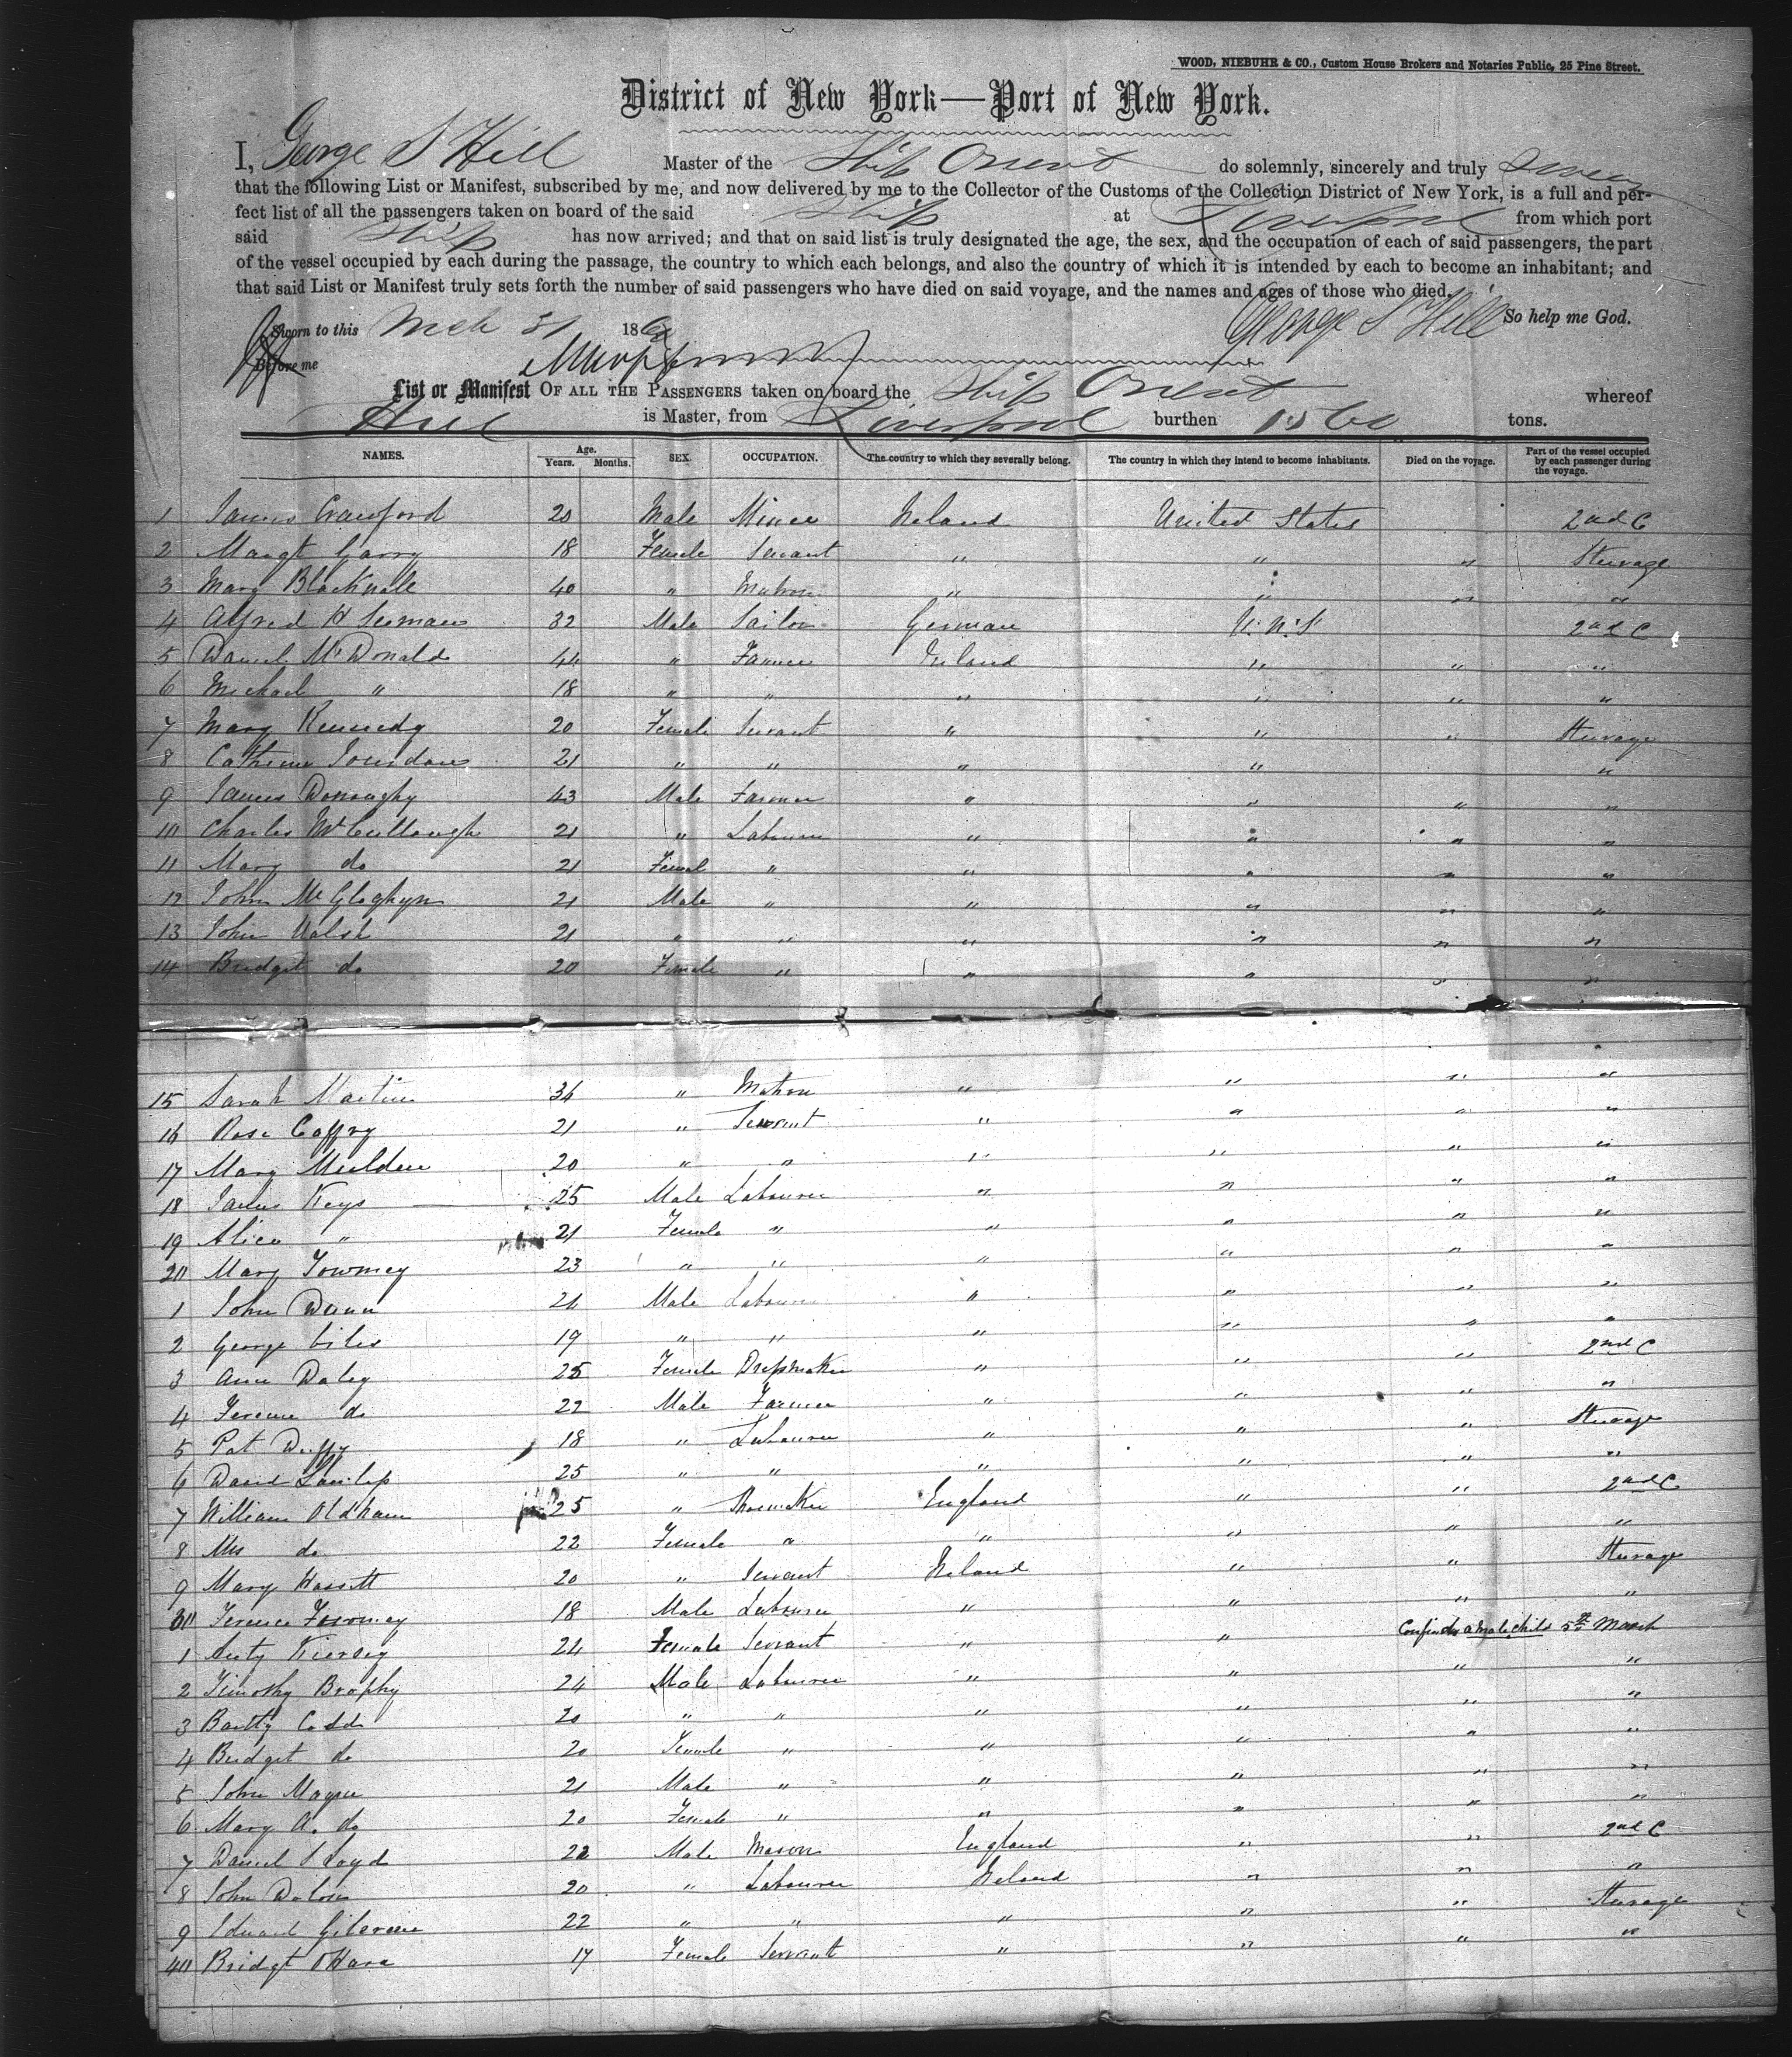 WOOD, NIEBUHR & CO., Custom House Brokers and Notaries Public, 25 Pine Street.
District of New York—Port of New York.
I, George S Hill Master of the Ship Orient do solemnly, sincerely and truly swear
that the following List or Manifest, subscribed by me, and now delivered by me to the Collector of the Customs of the Collection District of New York, is a full and per-
fect list of all the passengers taken on board of the said Ship at Liverpool from which port
said Ship has now arrived; and that on said list is truly designated the age, the sex, and the occupation of each of said passengers, the part
of the vessel occupied by each during the passage, the country to which each belongs, and also the country of which it is intended by each to become an inhabitant; and
that said List or Manifest truly sets forth the number of said passengers who have died on said voyage, and the names and ages of those who died.
Sworn to this Mch 31 186 George S Hill So help me God.
Before me
List or Manifest OF ALL THE PASSENGERS taken on board the Ship Orient whereof
Hill is Master, from Liverpool burthen 1560 tons.
NAMES. Age. Years. Months. SEX. OCCUPATION. The country to which they severally belong. The country in which they intend to become inhabitants. Died on the voyage. Part of the vessel occupied by each passenger during the voyage.
1 James Crawford 20 Male Miner Ireland United States 2nd C
2 Margt Garry 18 Female Servant " " " Steerage
3 Mary Blacknall 40 " Matron " " " "
4 Alfred H Seeman 32 Male Sailor German U.N.S 2nd C
5 Daniel McDonald 44 " Farmer Ireland " " "
6 Michael " 18 " " " " " "
7 Mary Kennedy 20 Female Servant " " " Steerage
8 Catherine Jourdan 21 " " " " "
9 James Donoughy 43 Male Farmer " " " "
10 Charles McCullough 21 " Labourer " " " "
11 Mary do 21 Femal " " " " "
12 John McGloghyn 21 Male " " " " "
13 John Walsh 21 " " " " " "
14 Bridget do 20 Female " " " " "
15 Sarah Martin 34 " Matron " " " "
16 Rose Caffry 21 " Servant " " " "
17 Mary Mulden 20 " " " " " "
18 James Keys 25 Male Labourer " " " "
19 Alice " 21 Female " " " " "
20 Mary Towmey 23 " " " " " "
1 John Dunn 24 Male Labourer " " " "
2 George Giles 19 " " " " " "
3 Ann Daley 25 Female Dressmaker " " " 2nd C
4 Terence do 22 Male Farmer " " " "
5 Pat Duffy 18 " Labourer " " " Steerage
6 David Dunlop 25 " " " " " "
7 William Oldham 25 " Shoemaker England " " 2nd C
8 Mrs do 22 Female " " " " "
9 Mary Hassett 20 " Servant Ireland " " Steerage
30 Terence Towmey 18 Male Labourer " " " "
1 Kiersey 24 Female Servant " " Confined a Male child 5th March
2 Timothy Brophy 24 Male Labourer " " " "
3 Batty Codd 20 " " " " " "
4 Bridget do 20 Female " " " " "
5 John Magee 21 Male " " " " "
6 Mary A. do 20 Female " " " " "
7 Daniel Lloyd 22 Male Mason England " " 2nd C
8 John Dolon 20 " Labourer Ireland " " "
9 Edward 22 " " " " " Steerage
40 Bridgt OHara 17 Female Servant " " " "